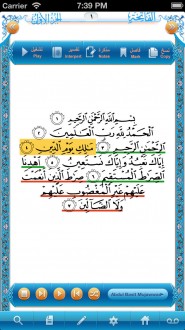 Carrier 7:39 PM
الفاتحة ١ الجزء الأول
تشغيل تفسير مذكرة نسخ
Play Interpret Notes Mark Copy
بِسْمِ اللَّهِ الرَّحْمَٰنِ الرَّحِيمِ ١
الْحَمْدُ لِلَّهِ رَبِّ الْعَالَمِينَ ٢
الرَّحْمَٰنِ الرَّحِيمِ ٣ مَالِكِ يَوْمِ الدِّينِ ٤
إِيَّاكَ نَعْبُدُ وَإِيَّاكَ نَسْتَعِينُ ٥ اهْدِنَا
الصِّرَاطَ الْمُسْتَقِيمَ ٦ صِرَاطَ الَّذِينَ أَنْعَمْتَ
عَلَيْهِمْ غَيْرِ الْمَغْضُوبِ عَلَيْهِمْ
وَلَا الضَّالِّينَ ٧